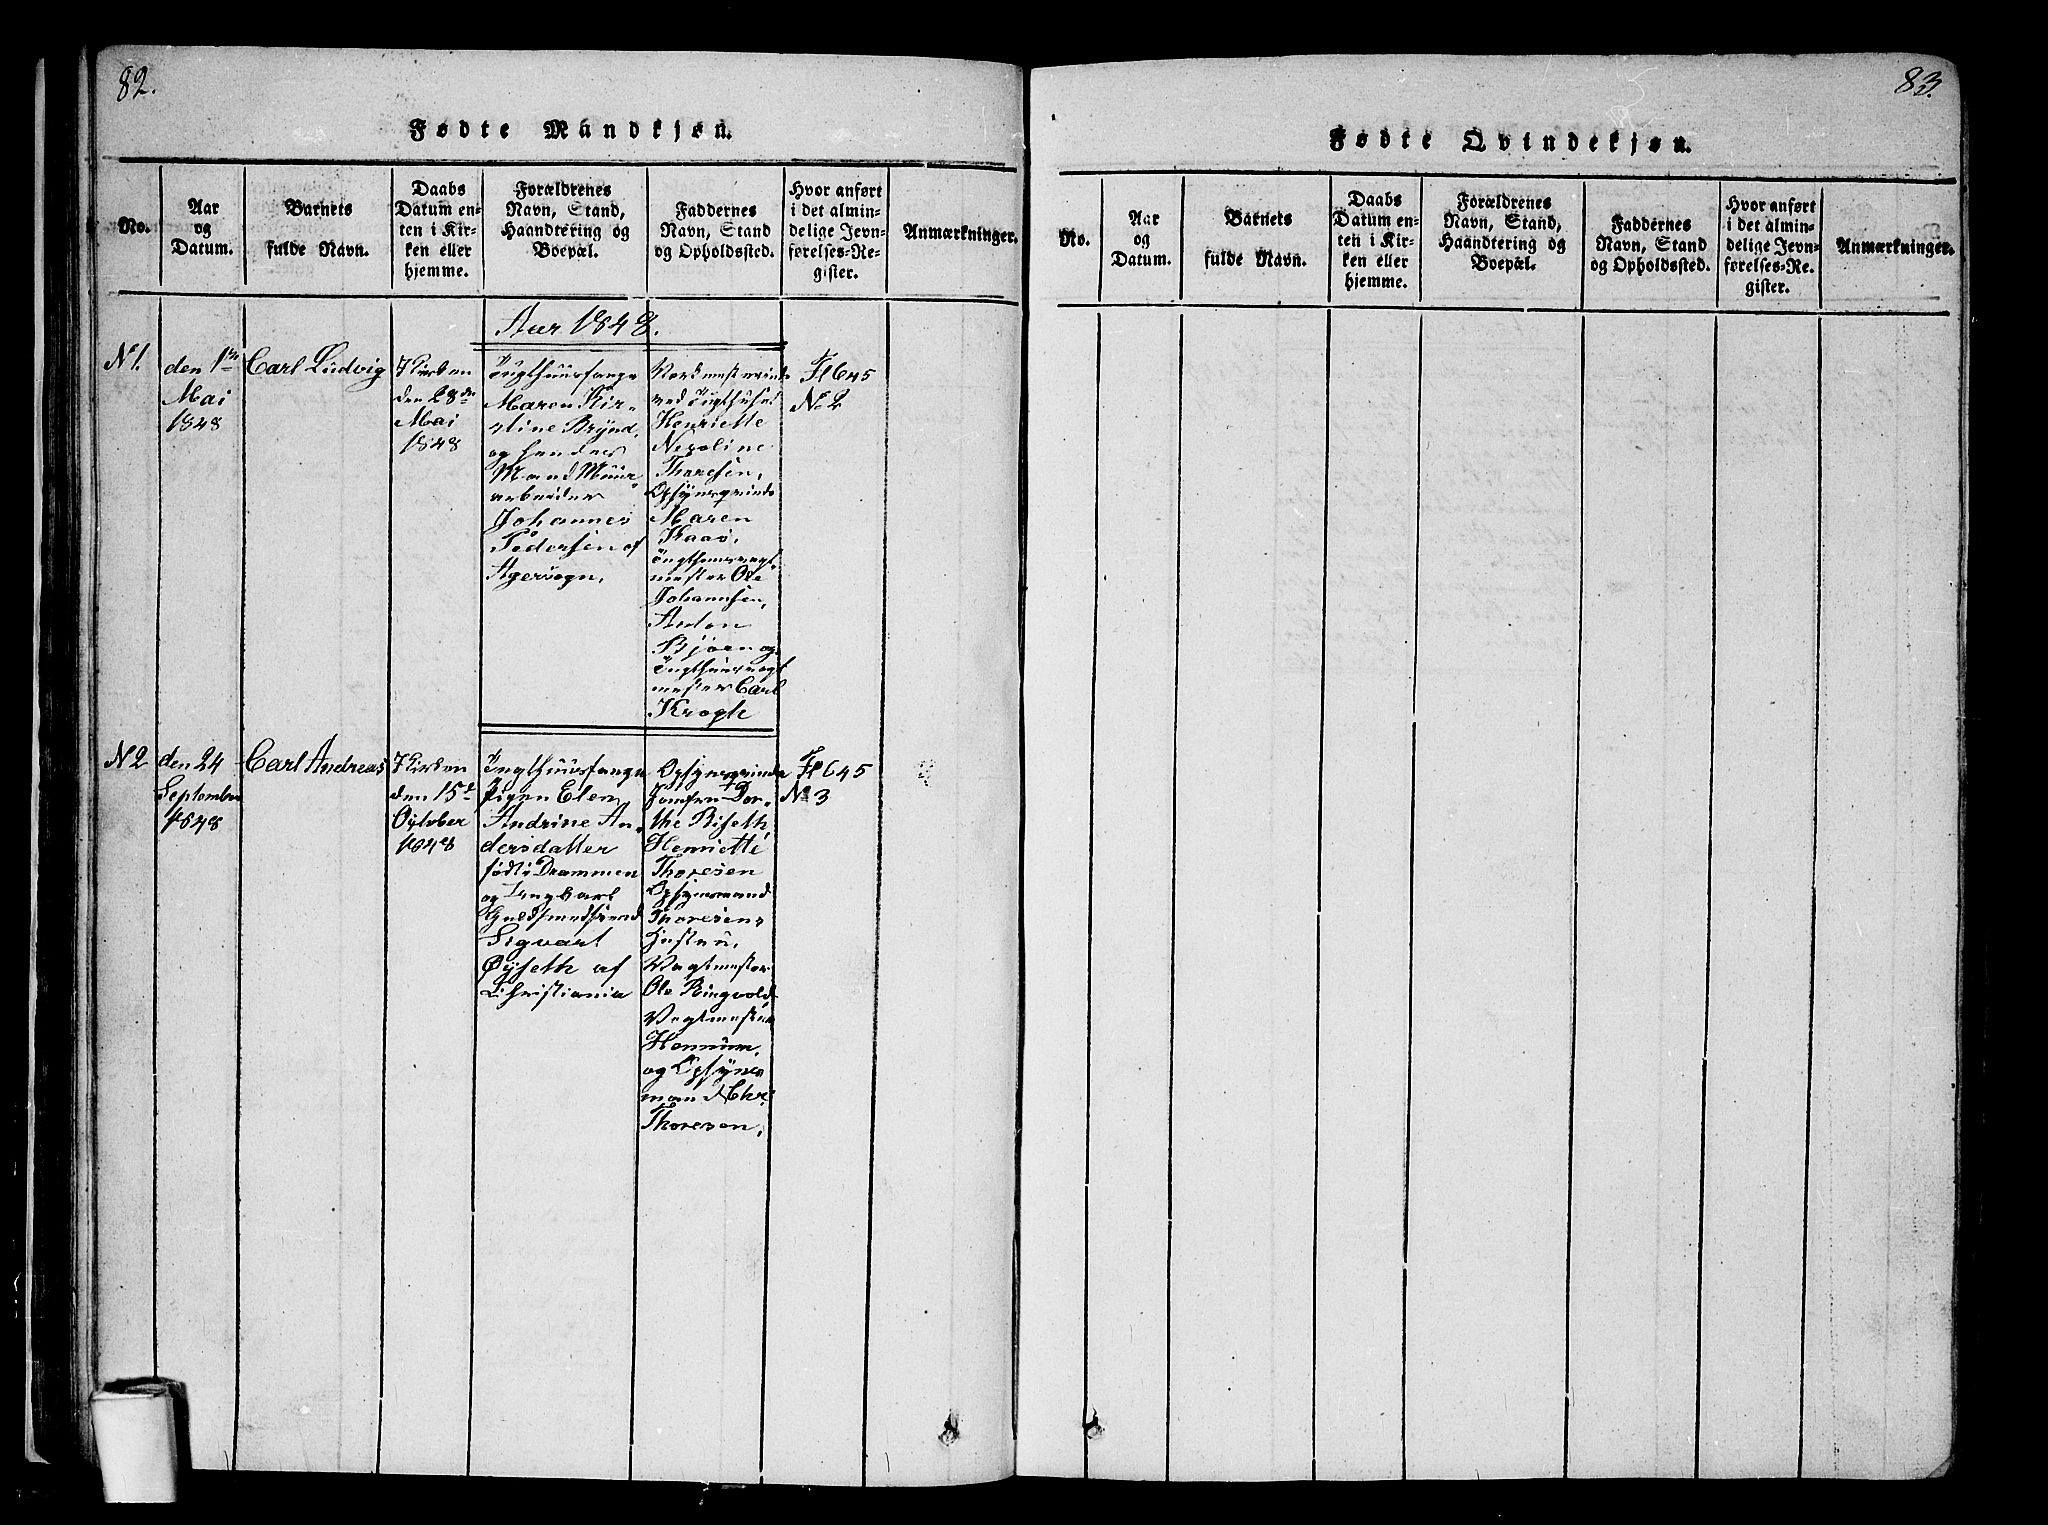 82.
Fødte Mandkjøn.
No.
Aar
og
Datum.
Barnets
fulde Navn.
Daabs
Datum en-
ten i Kir-
ken eller
hjemme.
Forældrenes
Navn, Stand,
Haandtering og
Boepæl.
Faddernes
Navn, Stand
og Opholdssted.
Hvor anført
i det almin-
delige Jevn-
førelses-Re-
gister.
Anmærkninger.
Aar 1848.
N1.
den 1ste
Mai
1848
Carl Ludvig
I Kirken
den 28de
Mai
1848
Tugthuusfange
Maren Kir-
stine Brynd,
og hendes
Mand Muur-
arbeider
Johannes
Pedersen af
Agersogn.
Værkmesterinde
ved Tugthuset
Henriette
Nicoline
Thoresen,
Opsynsqvinde
Maren
Kaas,
Tugthuusvagt-
mester Ole
Johannsen,
Anton
Bjørn og
Tugthuusvagt
mester Carl
Krogh
Fl 645
No 2
N2
den 24
September
1848
Carl Andreas
I Kirken
den 15de
October
1848
Tugthuusfange
Pigen Elen
Andrine An-
dersdatter
født i Drammen
og Ungkarl
Guldsmedsvend
Sigvart
Øyseth af
Christiania
Opsynsqvinde
Jomfru Dor-
the Biseth,
Henriette
Thoresen
Opsynsmand
Thoresens
Hustru,
Vagtmester
Ole Ringvold,
Vagtmester
Hennum,
og Opsyns
mand Chr.
Thoresen.
Fl 645
No 3
83.
Fødte Qvindekjøn.
No.
Aar
og
Datum.
Barnets
fulde Navn.
Daabs
Datum en-
ten i Kir-
ken eller
hjemme.
Forældrenes
Navn, Stand,
Haandtering og
Boepæl.
Faddernes
Navn, Stand
og Opholdssted.
Hvor anført
i det almin-
delige Jevn-
førelses-Re-
gister.
Anmærkninger.